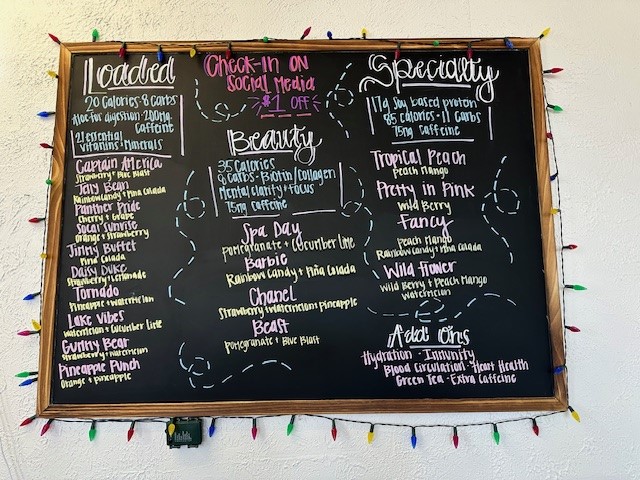 Loaded
20 Calories · 8 Carbs
Aloe for digestion · 200mg
Caffeine
21 essential
Vitamins + Minerals
Captain America
Strawberry + Blue Blast
Jelly Bean
Rainbow Candy + Piña Colada
Panther Pride
Cherry + Grape
Socal Sunrise
Orange + Strawberry
Jimmy Buffet
Piña Colada
Daisy Duke
Strawberry + Lemonade
Tornado
Pineapple + Watermelon
Lake Vibes
Watermelon + Cucumber Lime
Gummy Bear
Strawberry + Watermelon
Pineapple Punch
Orange + Pineapple
Check-in on
Social Media
$1 OFF
Beauty
35 Calories
Carbs · Biotin Collagen
Mental clarity + Focus
75mg Caffeine
Spa Day
Pomegranate + Cucumber Lime
Barbie
Rainbow Candy + Piña Colada
Chanel
Strawberry Watermelon + Pineapple
Beast
Pomegranate + Blue Blast
Specialty
17g Soy based protein
85 calories · 11 Carbs
75mg Caffeine
Tropical Peach
Peach Mango
Pretty in Pink
Wild Berry
Fancy
Peach Mango
Rainbow Candy + Piña Colada
Wild Flower
Wild Berry + Peach Mango
Watermelon
Add Ons
Hydration · Immunity
Blood Circulation · Heart Health
Green Tea · Extra Caffeine